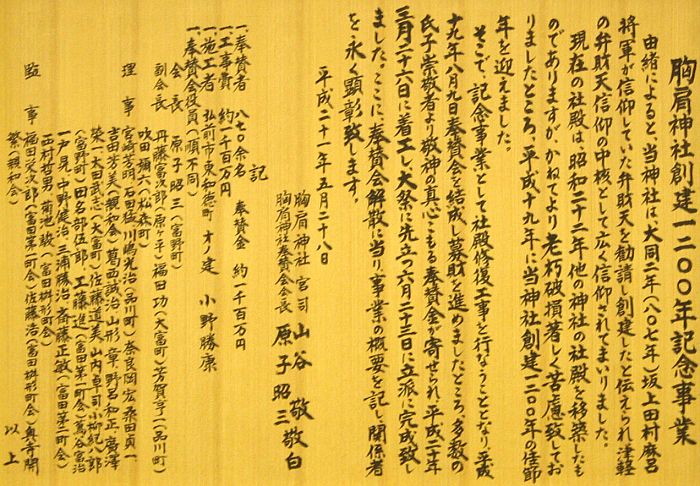 胸肩神社創建一二〇〇年記念事業
由緒によると、当神社は大同二年(八〇七年)坂上田村麻呂
将軍が信仰していた弁財天を勧請し創建したと伝えられ津軽
の弁財天信仰の中核として広く信仰されてまいりました。
現在の社殿は、昭和二十二年他の神社の社殿を移築したも
のでありますが、かねてより老朽破損著しく苦慮致してお
りましたところ、平成十九年に当神社創建一二〇〇年の佳節
年を迎えました。
そこで、記念事業として社殿修復工事を行なうこととなり、平成
十九年八月九日奉賛会を結成し募財を進めましたところ、多数の
氏子崇敬者より敬神の真心こもる奉賛金が寄せられ、平成二十年
三月二十六日に着工し、大祭に先立つ六月二十三日に立派に完成致し
ました。ここに、奉賛会解散に当り、事業の概要を記し関係者
を永く顕彰致します。
平成二十一年五月二十八日
胸肩神社 宮司 山谷 敬 敬白
胸肩神社奉賛会会長 原子昭三
記
一、奉賛者 八七〇余名 奉賛金 約一千百万円
一、工事費 約一千百万円
一、施工者 弘前市東和徳町 オノ建 小野勝康
一、奉賛会役員(順不同)
会長 原子昭三(富野町)
副会長 丹藤富次郎(原ヶ平)福田功(大富町)芳賀亨一(品川町)
吹田彌六(松森町)
理事 宮崎芳明 石田猛 川嶋光治(品川町)奈良岡宏 桑田貞一
吉田秀美(親和会)葛西誠治 山形章 野呂和正 廣澤
染一 太田武志(大富町)佐藤道美 山内卓司 小柳紀八郎
(富野町)田名部伍郎 工藤進(富田第一町会)蔦谷富治
一戸晃 中野健治 三浦勝治 斉藤正敏(富田第二町会)
西村哲男 菊池緩(富田桝形町会)
監事 福田栄次郎(富田第二町会)佐藤治(富田桝形町会)奥寺開
繁(親和会)
以上